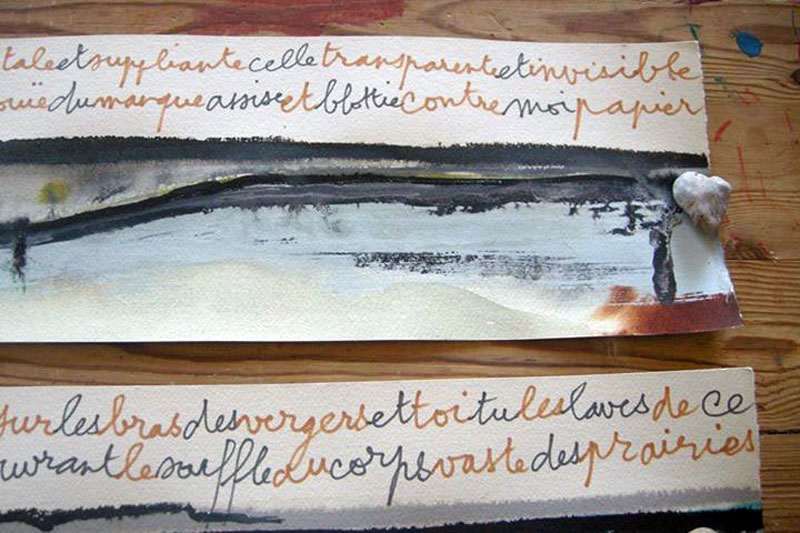 tale et suppliante celle transparente et invisible
ouïe du manque assise et blottie contre moi papier
sur les bras des vergers et toi tu les laves de ce
uvrant le souffle au corps vaste des prairies